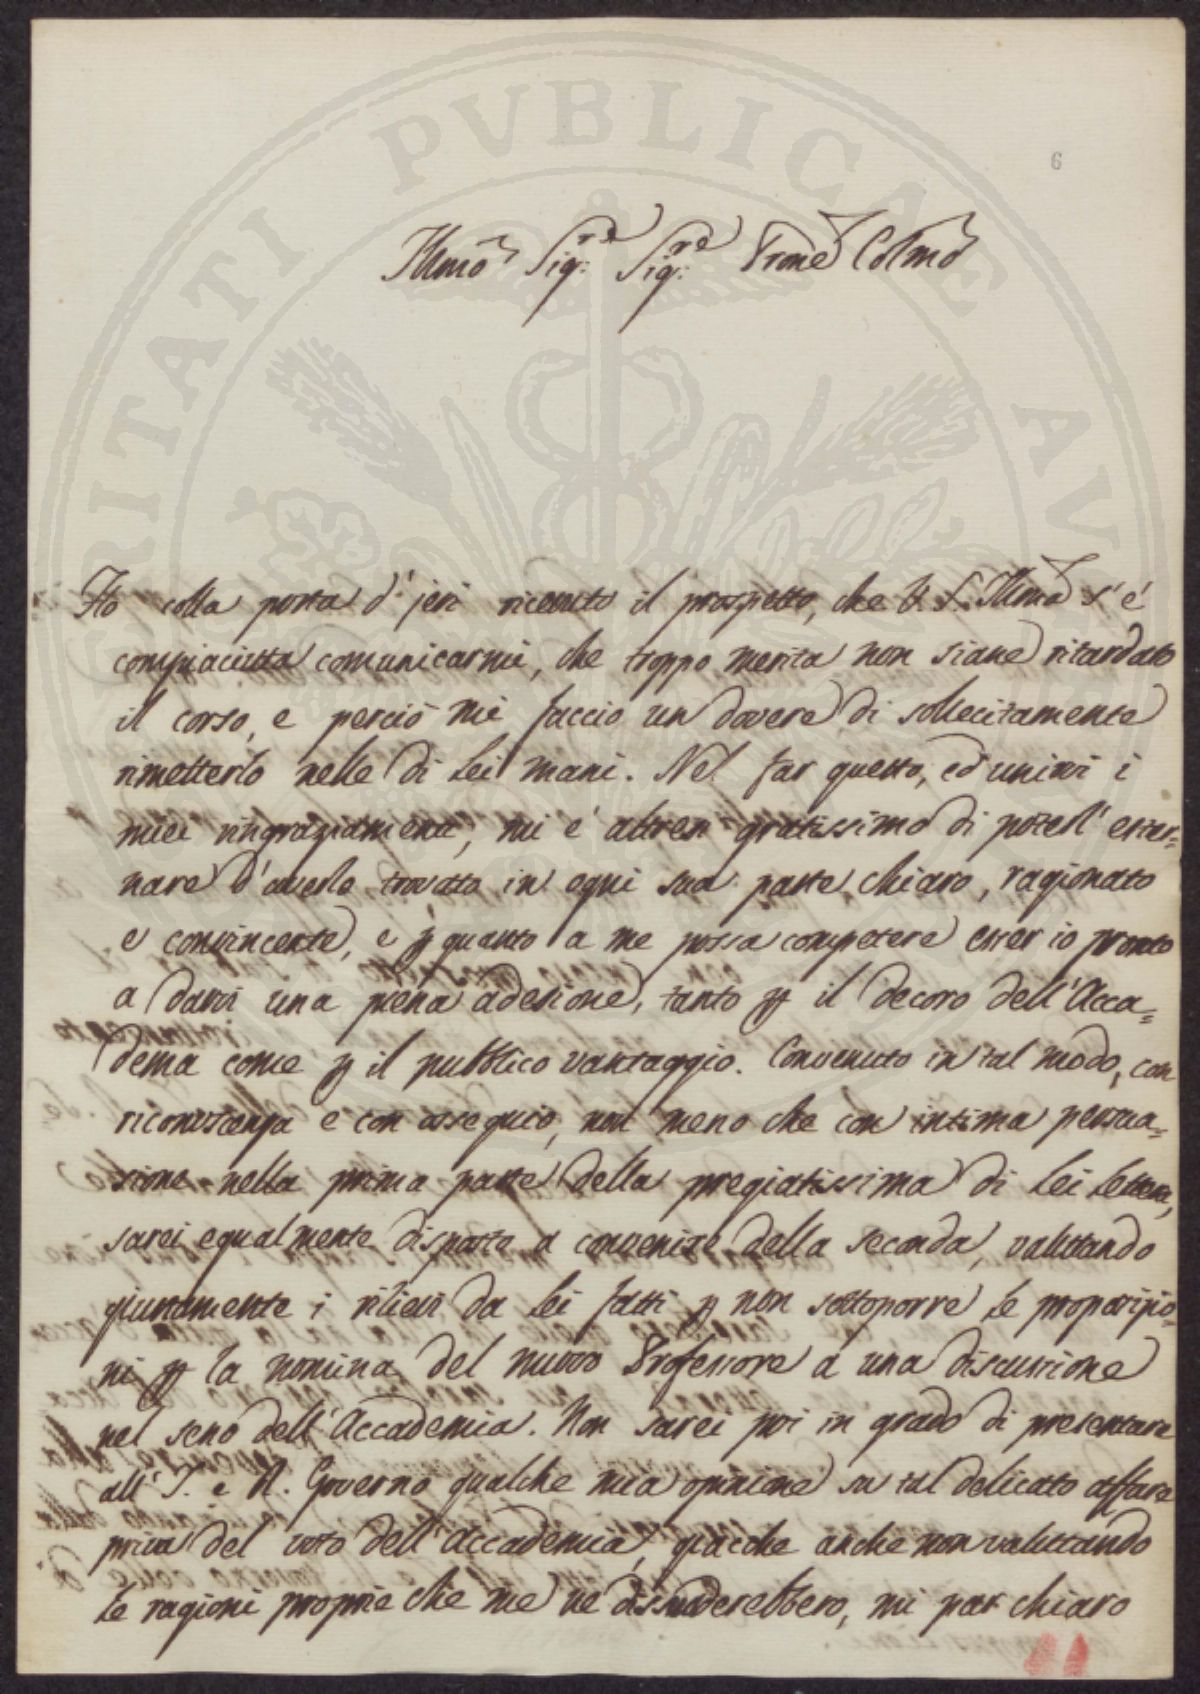 6
Illmo Sigre Sigre Prone Colmo
Ho colla posta d'jeri ricevuto il prospetto, che V. S. Illma s'è
compiaciutta comunicarmi, che troppo merita non siane ritardato
il corso, e perciò mi faccio un dovere di sollecitamente
rimetterlo nelle di Lei mani. Nel far questo, ed unirvi i
miei ringraziamenti, mi è altresì gratissimo di poterl' ester=
nare d'averlo trovatto in ogni sua parte chiaro, ragionato
e convincente, e p quanto a me possa competere esser io pronto
a darvi una piena adesione, tanto p il decoro dell'Acca=
demia come p il pubblico vantaggio. Convenuto in tal modo, con
riconoscenza e con ossequio, non meno che con intima persua=
sione nella prima parte della pregiatissima di Lei lettera,
sarei egualmente disposto a convenire della seconda, valuttando
giustamente i rilievi da Lei fatti p non sottoporre le proposizio=
ni p la nomina del nuovo Professore a una discussione
nel seno dell'Accademia. Non sarei poi in grado di presentare
all' I. e R. Governo qualche mia opinione su tal delicato affare
priva del voto dell'Accademia, giacche anche non valuttando
le ragioni proprie che me ne dissuaderebbero, mi par chiaro
VERITATI PVBLICAE AV